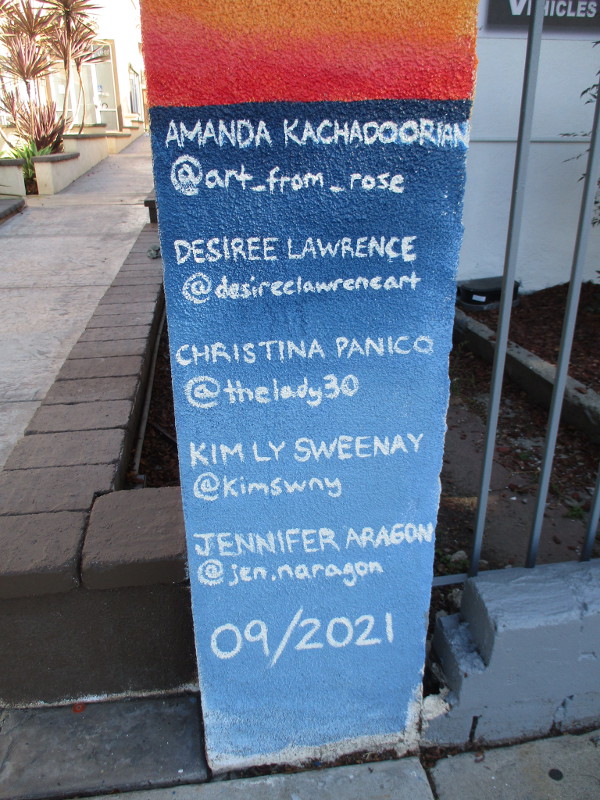 VEHICLES
AMANDA KACHADOORIAN
@art_from_rose
DESIREE LAWRENCE
@desireelawrenceart
CHRISTINA PANICO
@thelady30
KIM LY SWEENAY
@kimswny
JENNIFER ARAGON
@jen.naragon
09/2021